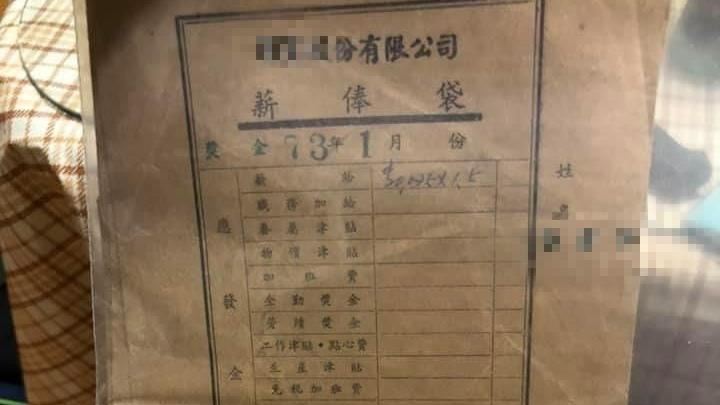 份有限公司
薪俸袋
獎金 73年1月份
薪給
職務加給
眷屬津貼
物價津貼
加班費
全勤獎金
勞績獎金
工作津貼·點心費
生產津貼
免稅加班費
應發金
姓